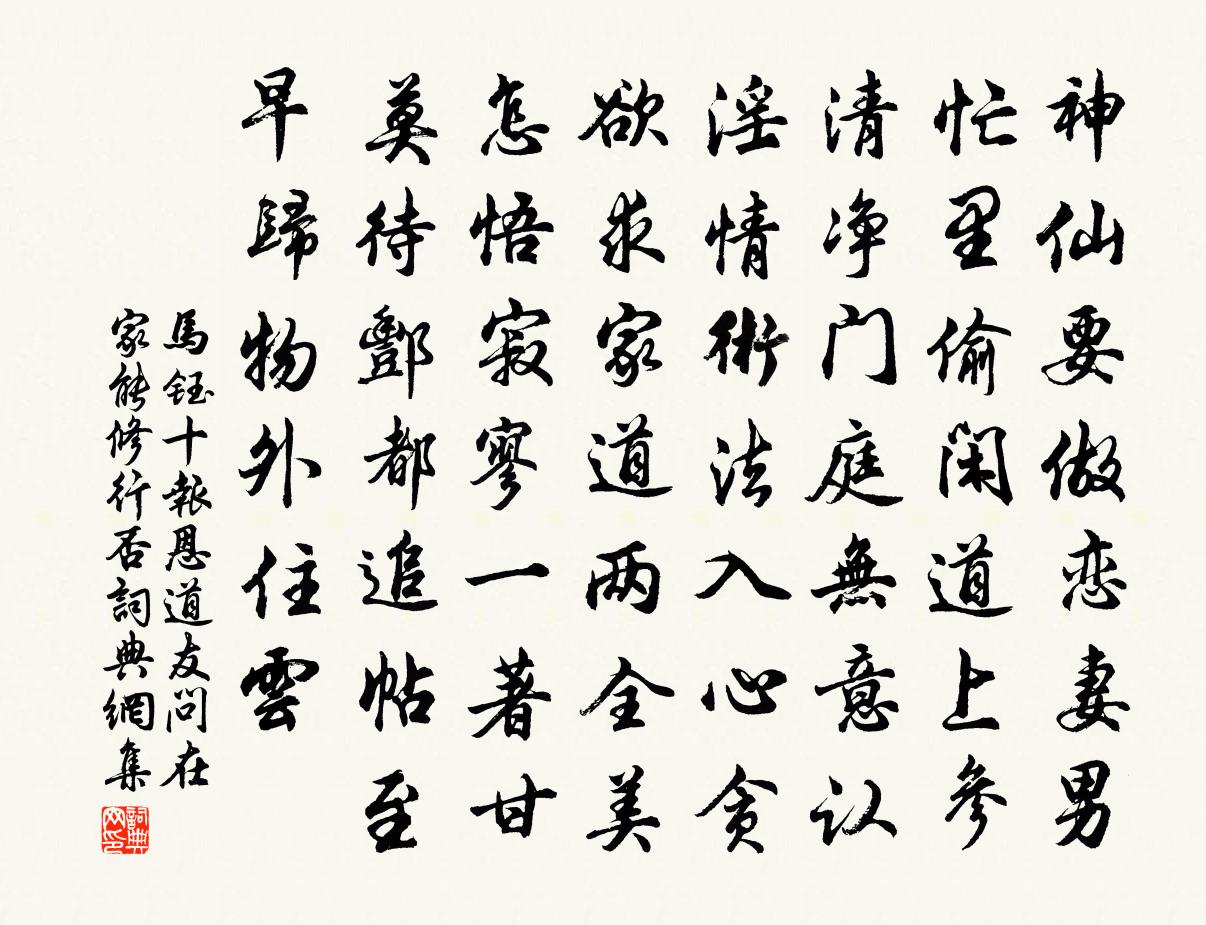 神仙要做恋妻男
忙里偷闲道上参
清净门庭無意认
淫情術法入心贪
欲求家道两全美
怎悟寂寥一著甘
莫待酆都追帖至
早歸物外住雲
馬鈺十報恩道友問在
家能修行否詞典網集
詞典
网印